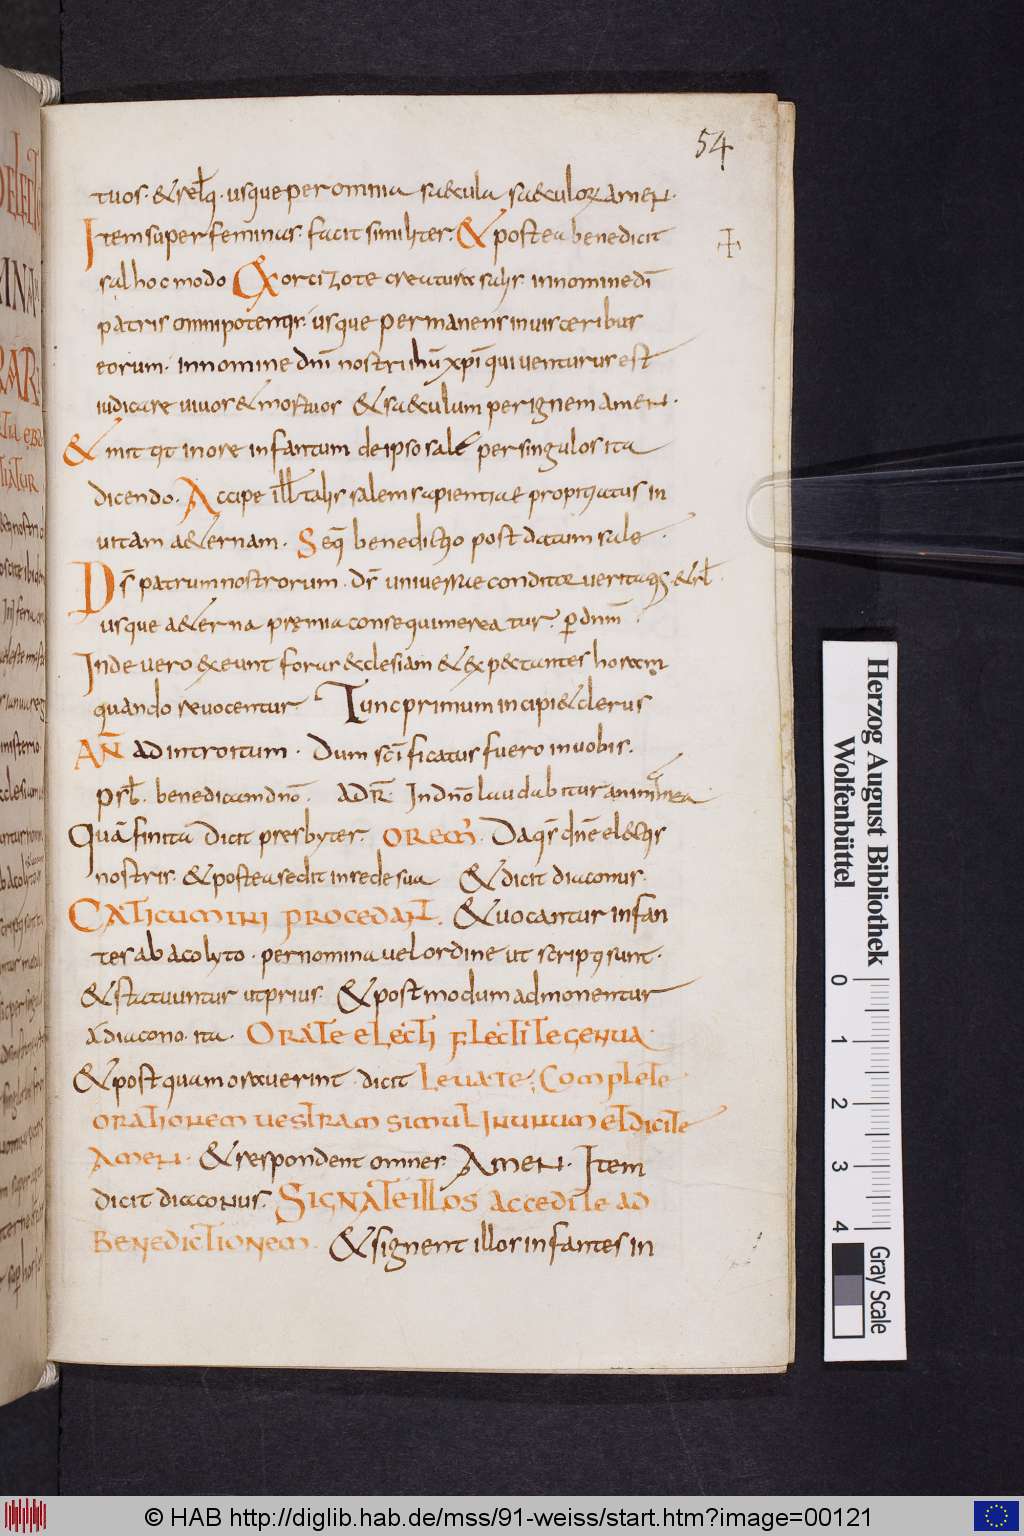 54
tuos · &relq̅ · usque per omnia saecula saeculoꝝ amen ·
Item super feminas · facit similiter · & postea benedicit
sal hoc modo Exorcizo te creatura salis · in nomine dī
patris omnipotentis · usque permanens in uisceribus
eorum · in nomine dn̄i nostri ihū xp̄i qui uenturus est
iudicare uiuos & mortuos & saeculum per ignem amen ·
& mittit in ore infantum de ipso sale per singulos ita
dicendo · Accipe ill̅ talis salem sapientiae propitiatus in
uitam aeternam · Seq̄ benedictio post datum sale ·
Ds̄ patrum nostrorum · ds̄ uniuersae conditae ueritatis · &rl̅
usque aeterna praemia consequi mereatur · ꝑ dnm̄ ·
Inde uero exeunt foras ecclesiam & expectantes horam
quando reuocentur · Tunc primum incipit clerus
AÑ ad introitum · Dum sc̄i ficatus fuero in uobis ·
psl̅ · benedicam dn̄o · AD R̅ · In dn̄o laudabitur anima mea
Quā finita dicit presbyter · OREM̅ · Da qs̄ dn̄e electis
nostris · & postea sedit in sede sua & dicit diaconus ·
CATICUMINI PROCEDANT · & uocantur infan
tes ab acolyto · per nomina uel ordine ut scripti sunt ·
& statuuntur ut prius · & postmodum admonentur
a diacono · ita · ORATE ELECTI FLECTITE GENUA ·
& postquam orauerint · dicit LEUATE ; COMPLETE
ORATIONEM UESTRAM SIMUL IN UNUM ET DICITE
AMEN · & respondent omnes · AMEN · Item
dicit diaconus · SIGNATE ILLOS ACCEDITE AD
BENEDICTIONEM · & signent illos infantes in
Herzog August Bibliothek
Wolfenbüttel
0 1 2 3 4
Gray Scale
© HAB http://diglib.hab.de/mss/91-weiss/start.htm?image=00121